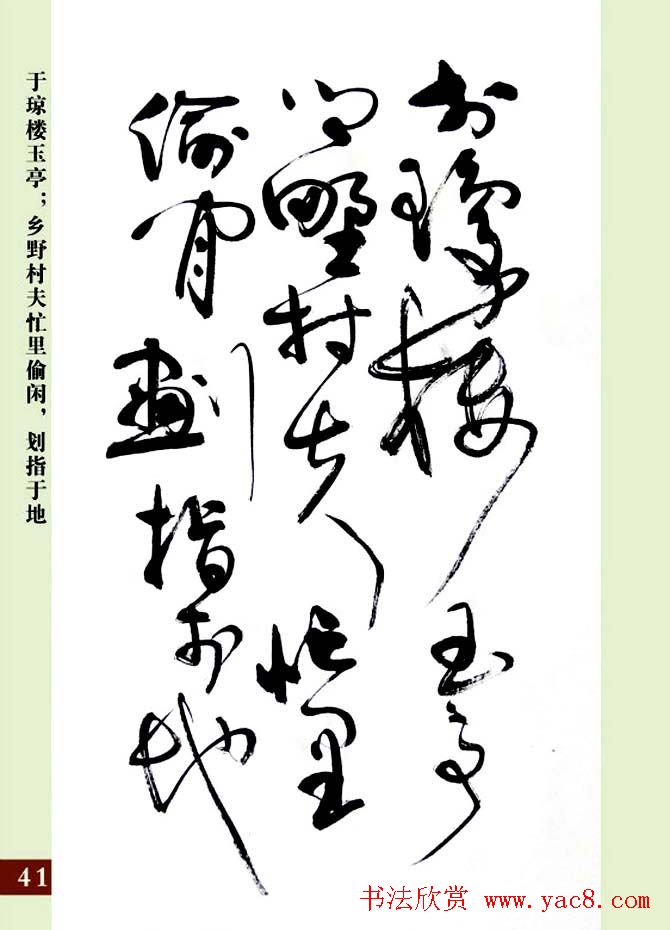 于琼楼玉亭；乡野村夫忙里偷闲，划指于地
於瓊楼玉亭
乡野村夫忙里
偷闲劃指於地
41
书法欣赏 www.yac8.com